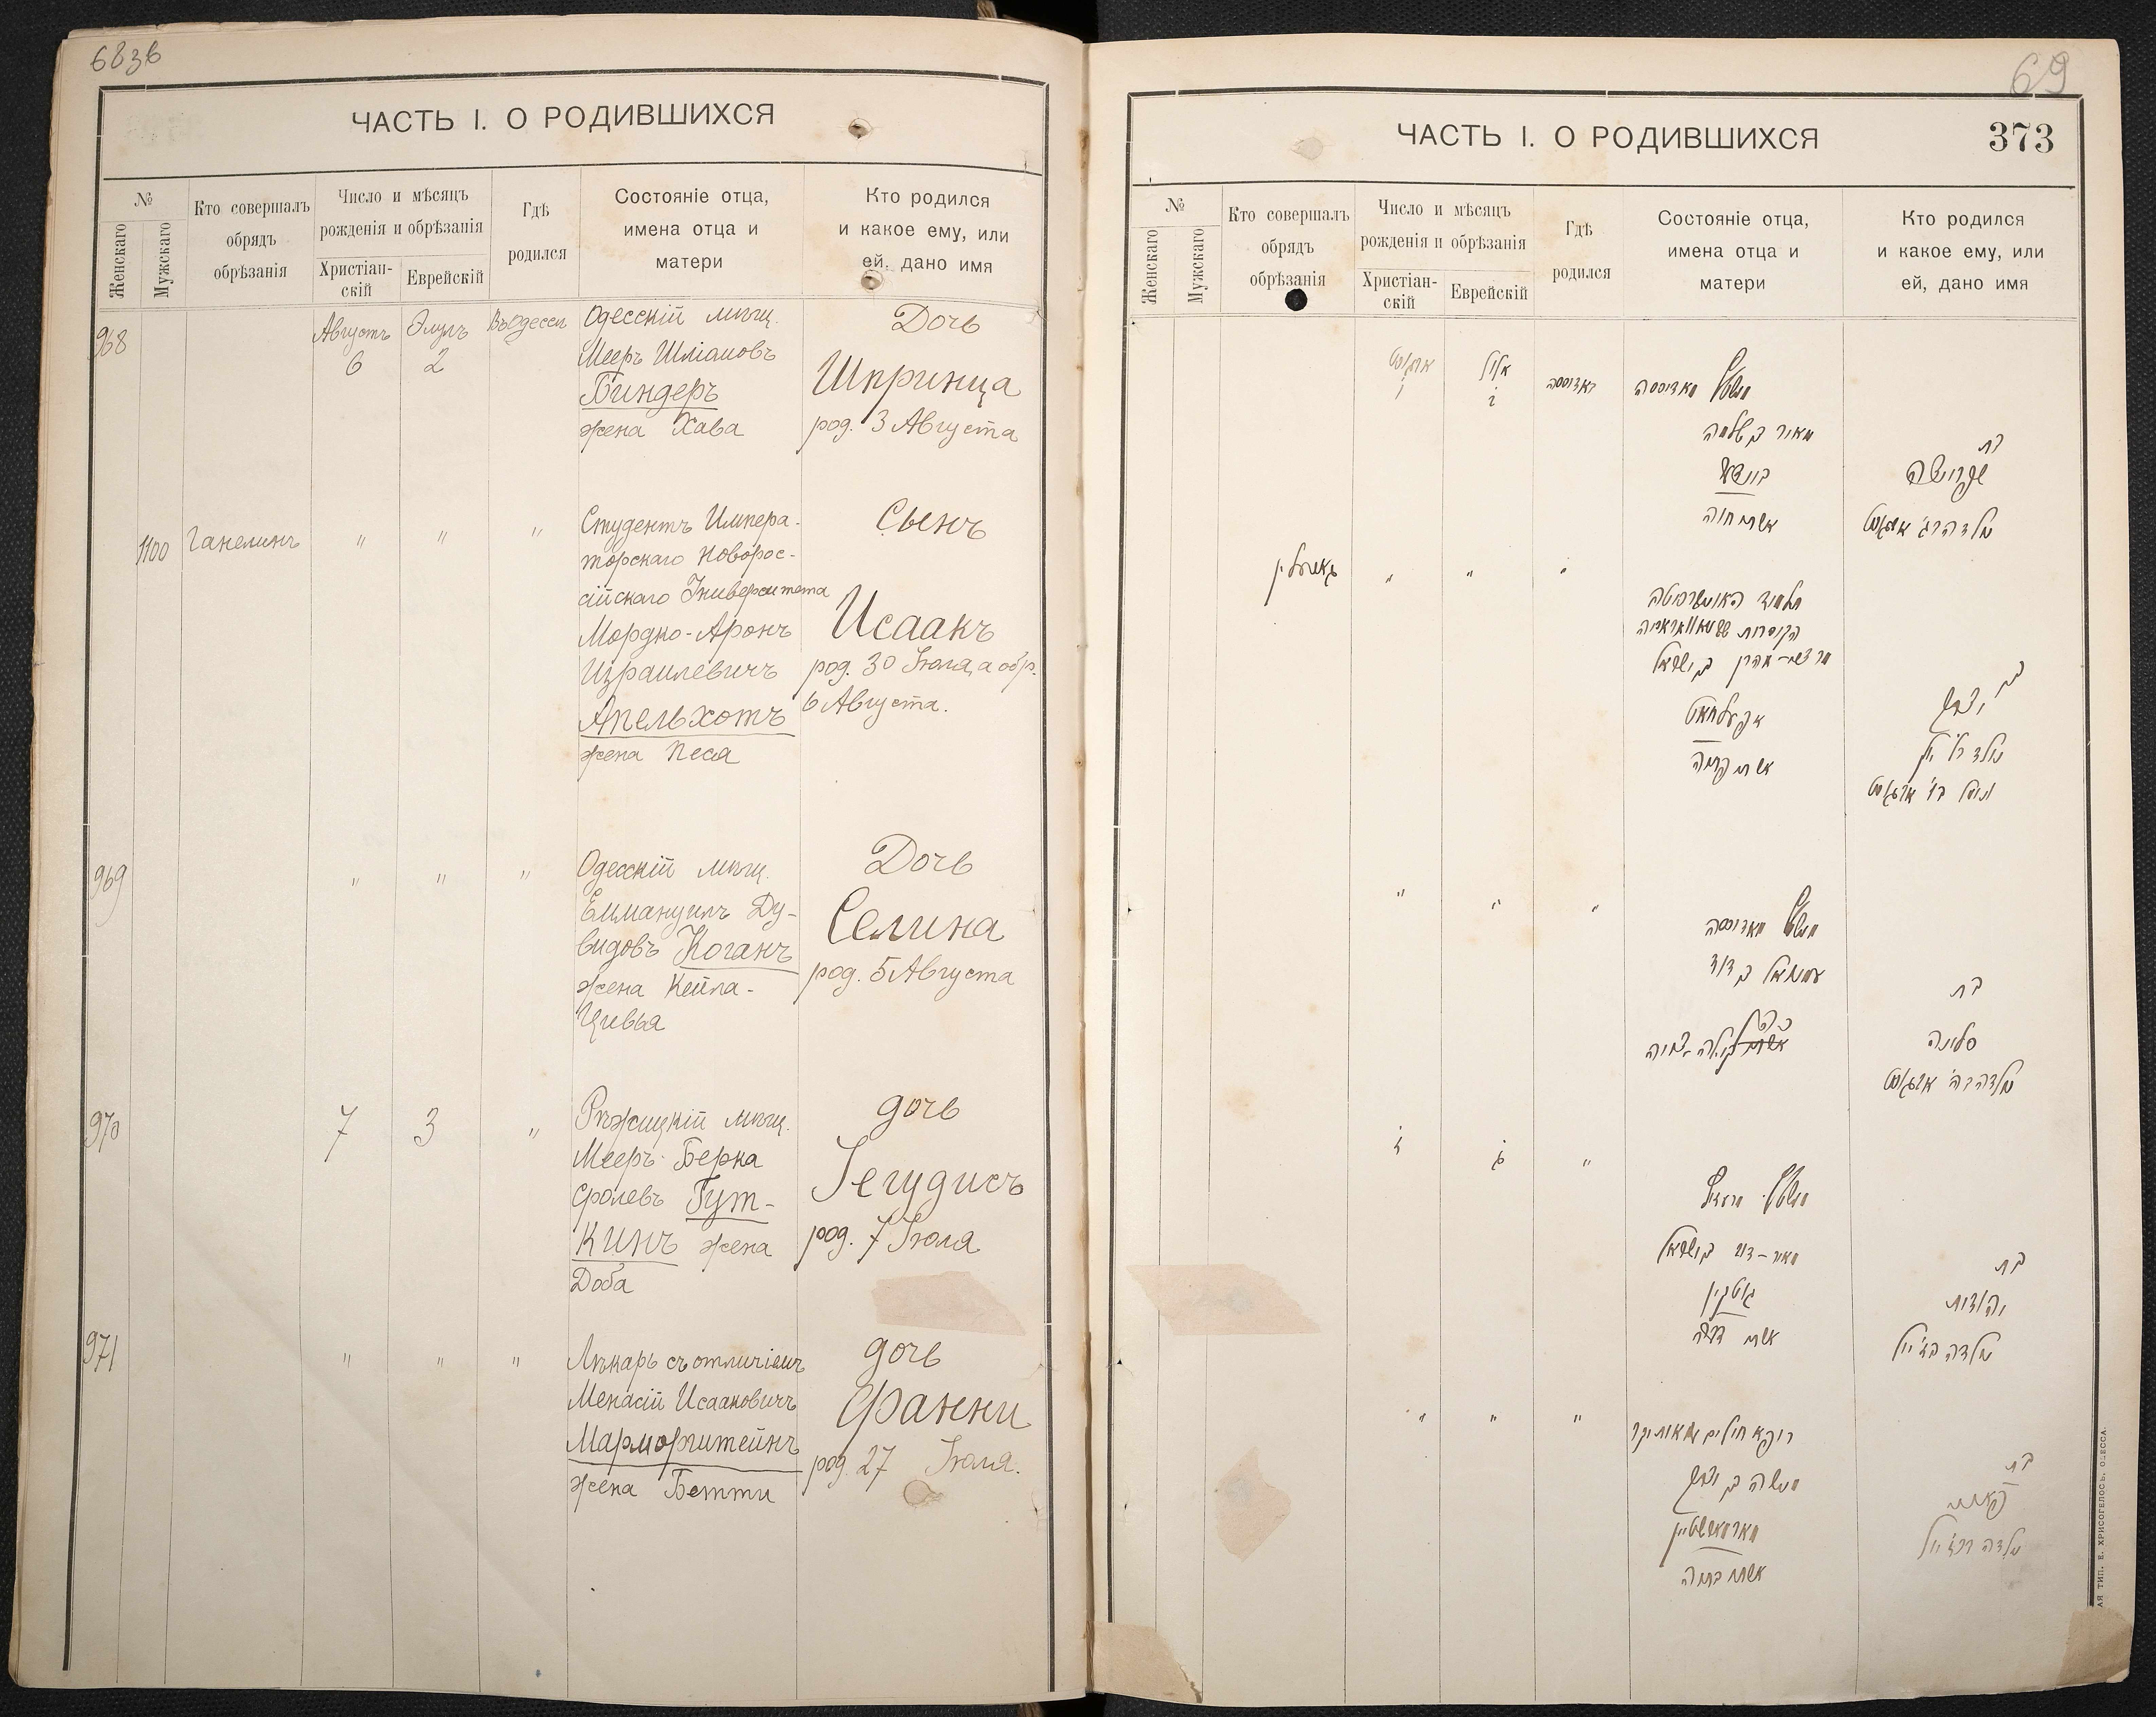 683б
ЧАСТЬ I. О РОДИВШИХСЯ
№
Женскаго
Мужскаго
Кто совершалъ
обрядъ
обрѣзанія
Число и мѣсяцъ
рожденія и обрѣзанія
Христіан-
скій
Еврейскій
Гдѣ
родился
Состояніе отца,
имена отца и
матери
Кто родился
и какое ему, или
ей, дано имя
968
Августъ
6
Элулъ
2
Въ Одессѣ
Одесскій мѣщ.
Мееръ Шліомовъ
Биндеръ
жена Хава
Дочь
Шпринца
род. 3 Августа
1100
Ганелинъ
"
"
"
Студентъ Импера-
торскаго Новорос-
сійскаго Университета
Мордко-Аронъ
Израилевичъ
Апельхотъ
жена Песа
Сынъ
Исаакъ
род. 30 Іюля, а обр.
6 Августа.
969
"
"
"
Одесскій мѣщ.
Еммануилъ Ду-
видовъ Коганъ
жена Кейла-
Цивья
Дочь
Селина
род. 5 Августа
970
7
3
"
Рѣжицкій мѣщ.
Мееръ-Берка
Сролевъ Гут-
кинъ жена
Доба
дочь
Іегудисъ
род. 7 Іюля
971
"
"
"
Лѣкарь съ отличіемъ
Менасій Исааковичъ
Марморштейнъ
жена Бетти
дочь
Фанни
род. 27 Іюля.
69
ЧАСТЬ I. О РОДИВШИХСЯ
373
№
Женскаго
Мужскаго
Кто совершалъ
обрядъ
обрѣзанія
Число и мѣсяцъ
рожденія и обрѣзанія
Христіан-
скій
Еврейскій
Гдѣ
родился
Состояніе отца,
имена отца и
матери
Кто родился
и какое ему, или
ей, дано имя
אויגוסט
ו
אלול
ב
מאדיססה
מאיר בן שלמה
בינדער
אשתו חוה
בת
שפרינצה
נולדה בג' אויגוסט
גאנעלין
"
"
"
תלמיד האוניווערזיטה
מרדכי-אהרן בן ישראל
אפעלחאט
בן
יצחק
נולד ל' יולי
נימול בו' אויגוסט
"
"
"
מאדיססה
עמנואל בן דוד
קיילה-צביה
בת
סלינה
נולדה בה' אויגוסט
ז
ג
"
מאיר-דוב בן ישראל
גוטקין
בת
יהודית
נולדה בז' יולי
"
"
"
רופא חולים
מנשה בן יצחק
מארמארשטיין
בת
פאני
נולדה בכ"ז יולי
ТИП. Е. ХРИСОГЕЛОСЪ, ОДЕССА.